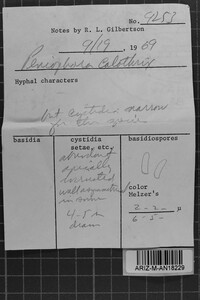 No. 9253
Notes by R. L. Gilbertson
9/19, 1969
Peniophora
Hyphal characters
but cystidia narrow
for the
basidia
cystidia
setae, etc.
basidiospores
abundant
apically
incrusted
in
4-5 μ
diam
color
Melzer's
2-2 μ
6-5-
ARIZ-M-AN18229